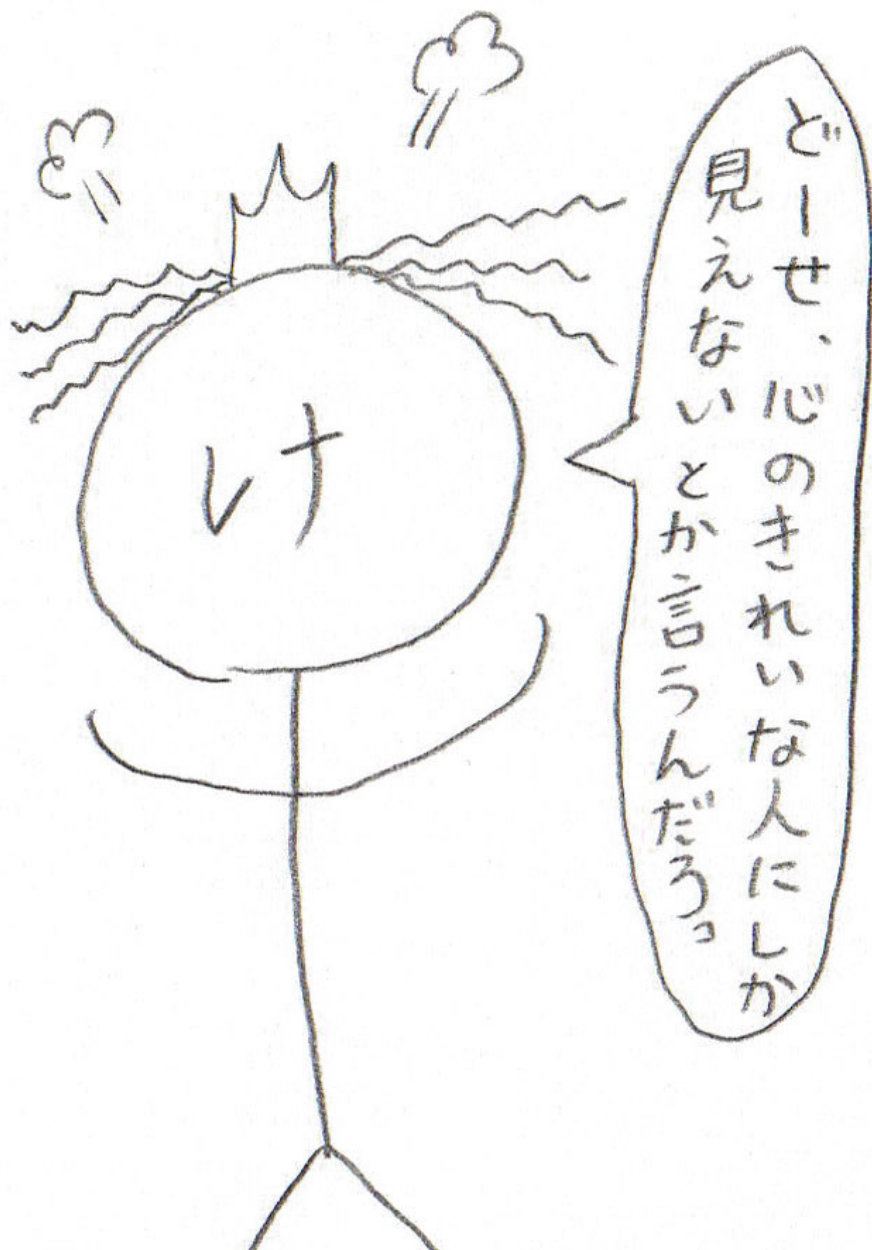 け
どーせ、心のきれいな人にしか
見えないとか言うんだろっ